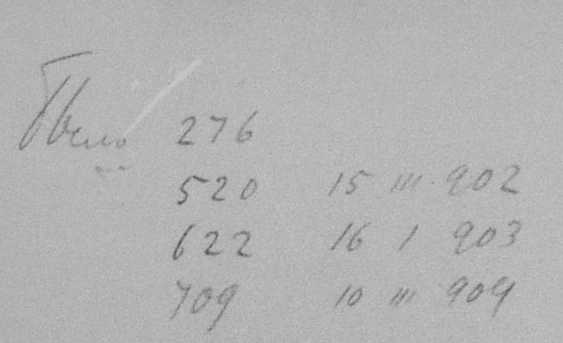 276
520 15 III 902
622 16 I 903
709 10 III 909